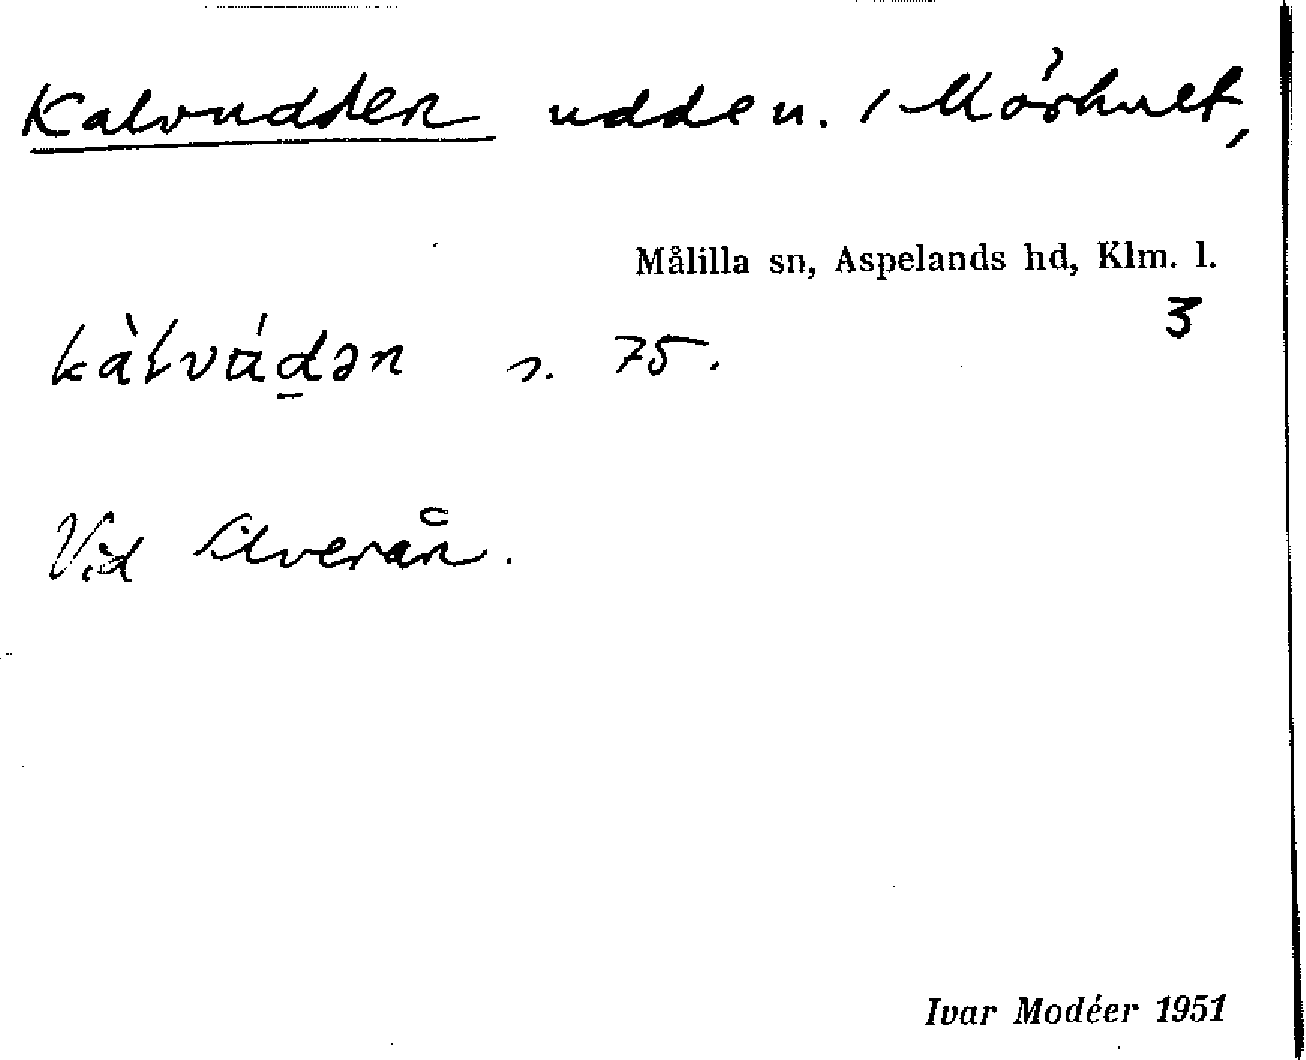 Kalvudden udden. i Mörhult,
Målilla sn, Aspelands hd, Klm. l.
3
kàłvúd̠ən s. 75.
Vid Silverån.
Ivar Modéer 1951